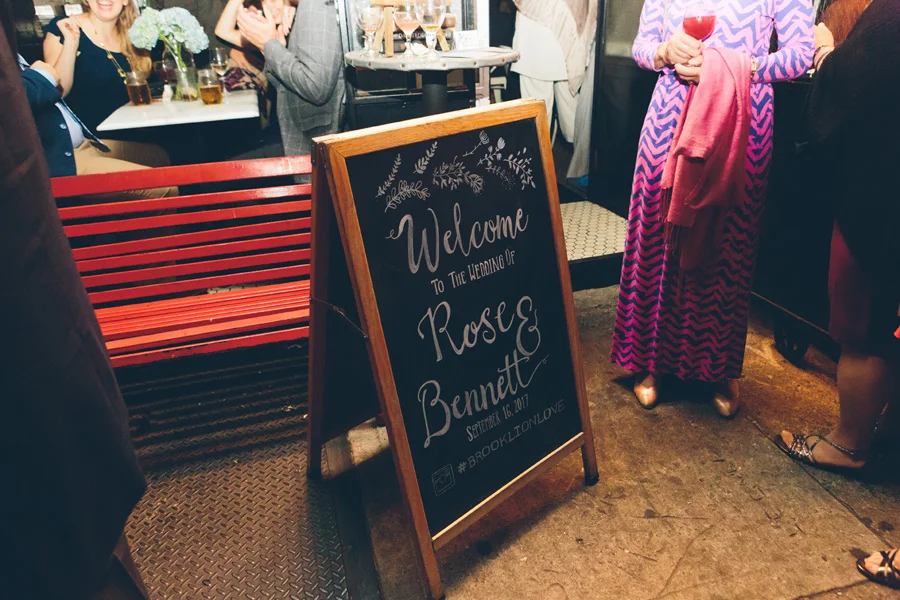 Welcome
TO THE WEDDING OF
Rose &
Bennett
SEPTEMBER 16, 2017
#BROOKLIONLOVE